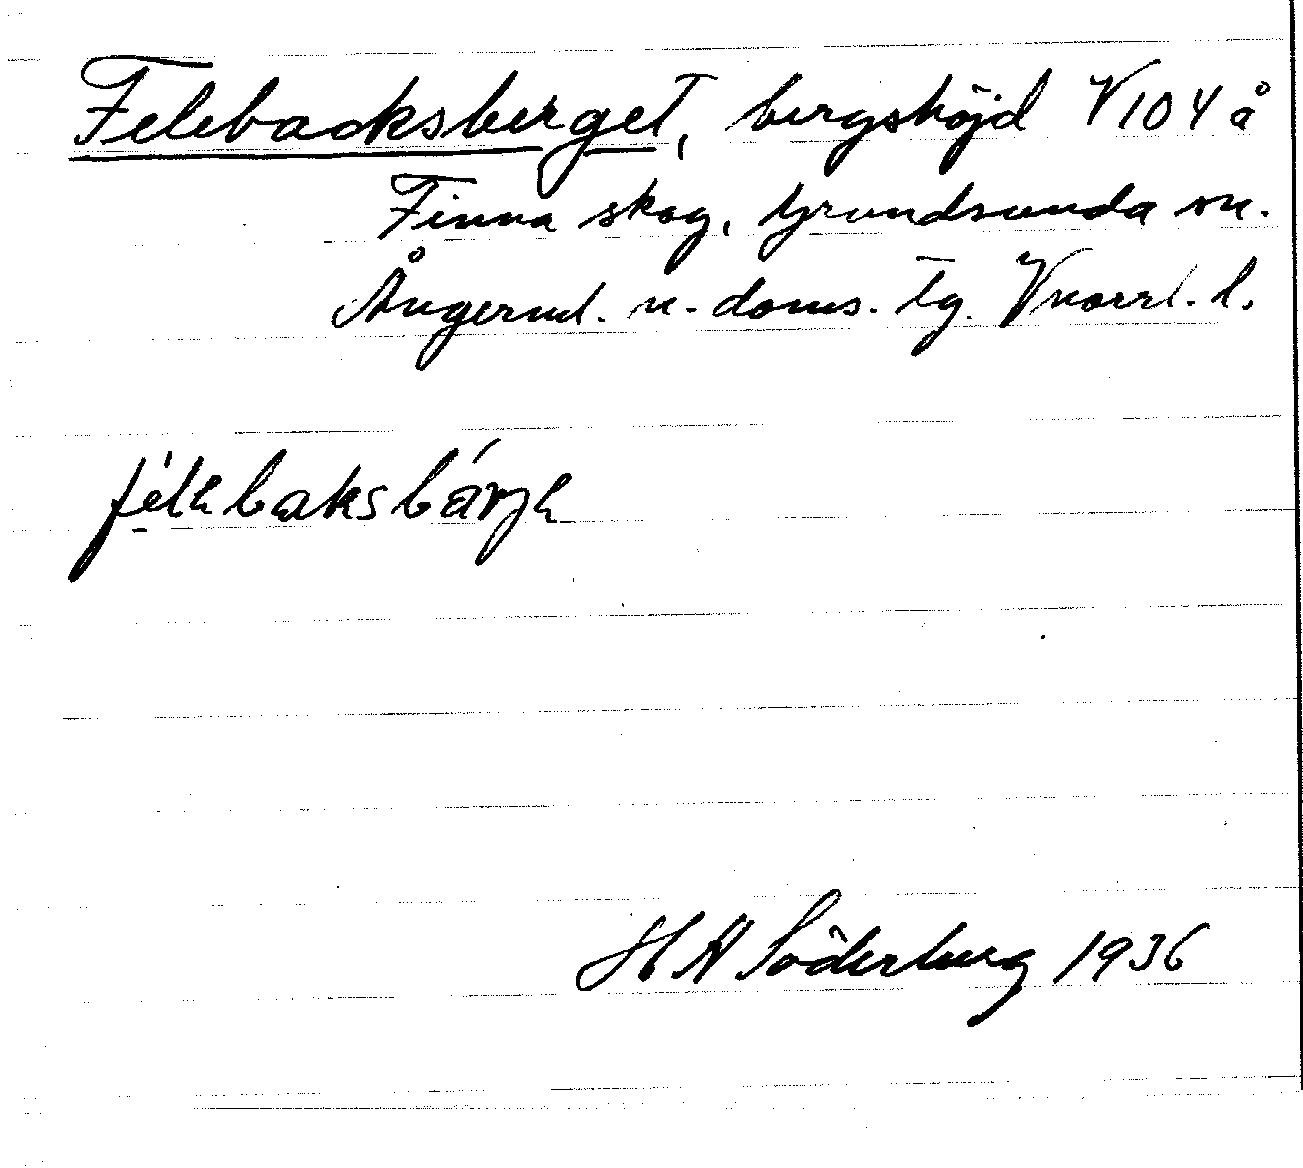 Felebacksberget, bergshöjd V 104 å
Finna skog, Grundsunda sn.
Ångerml. n. doms. tg. Vnorrl. l.
H A Söderberg 1936